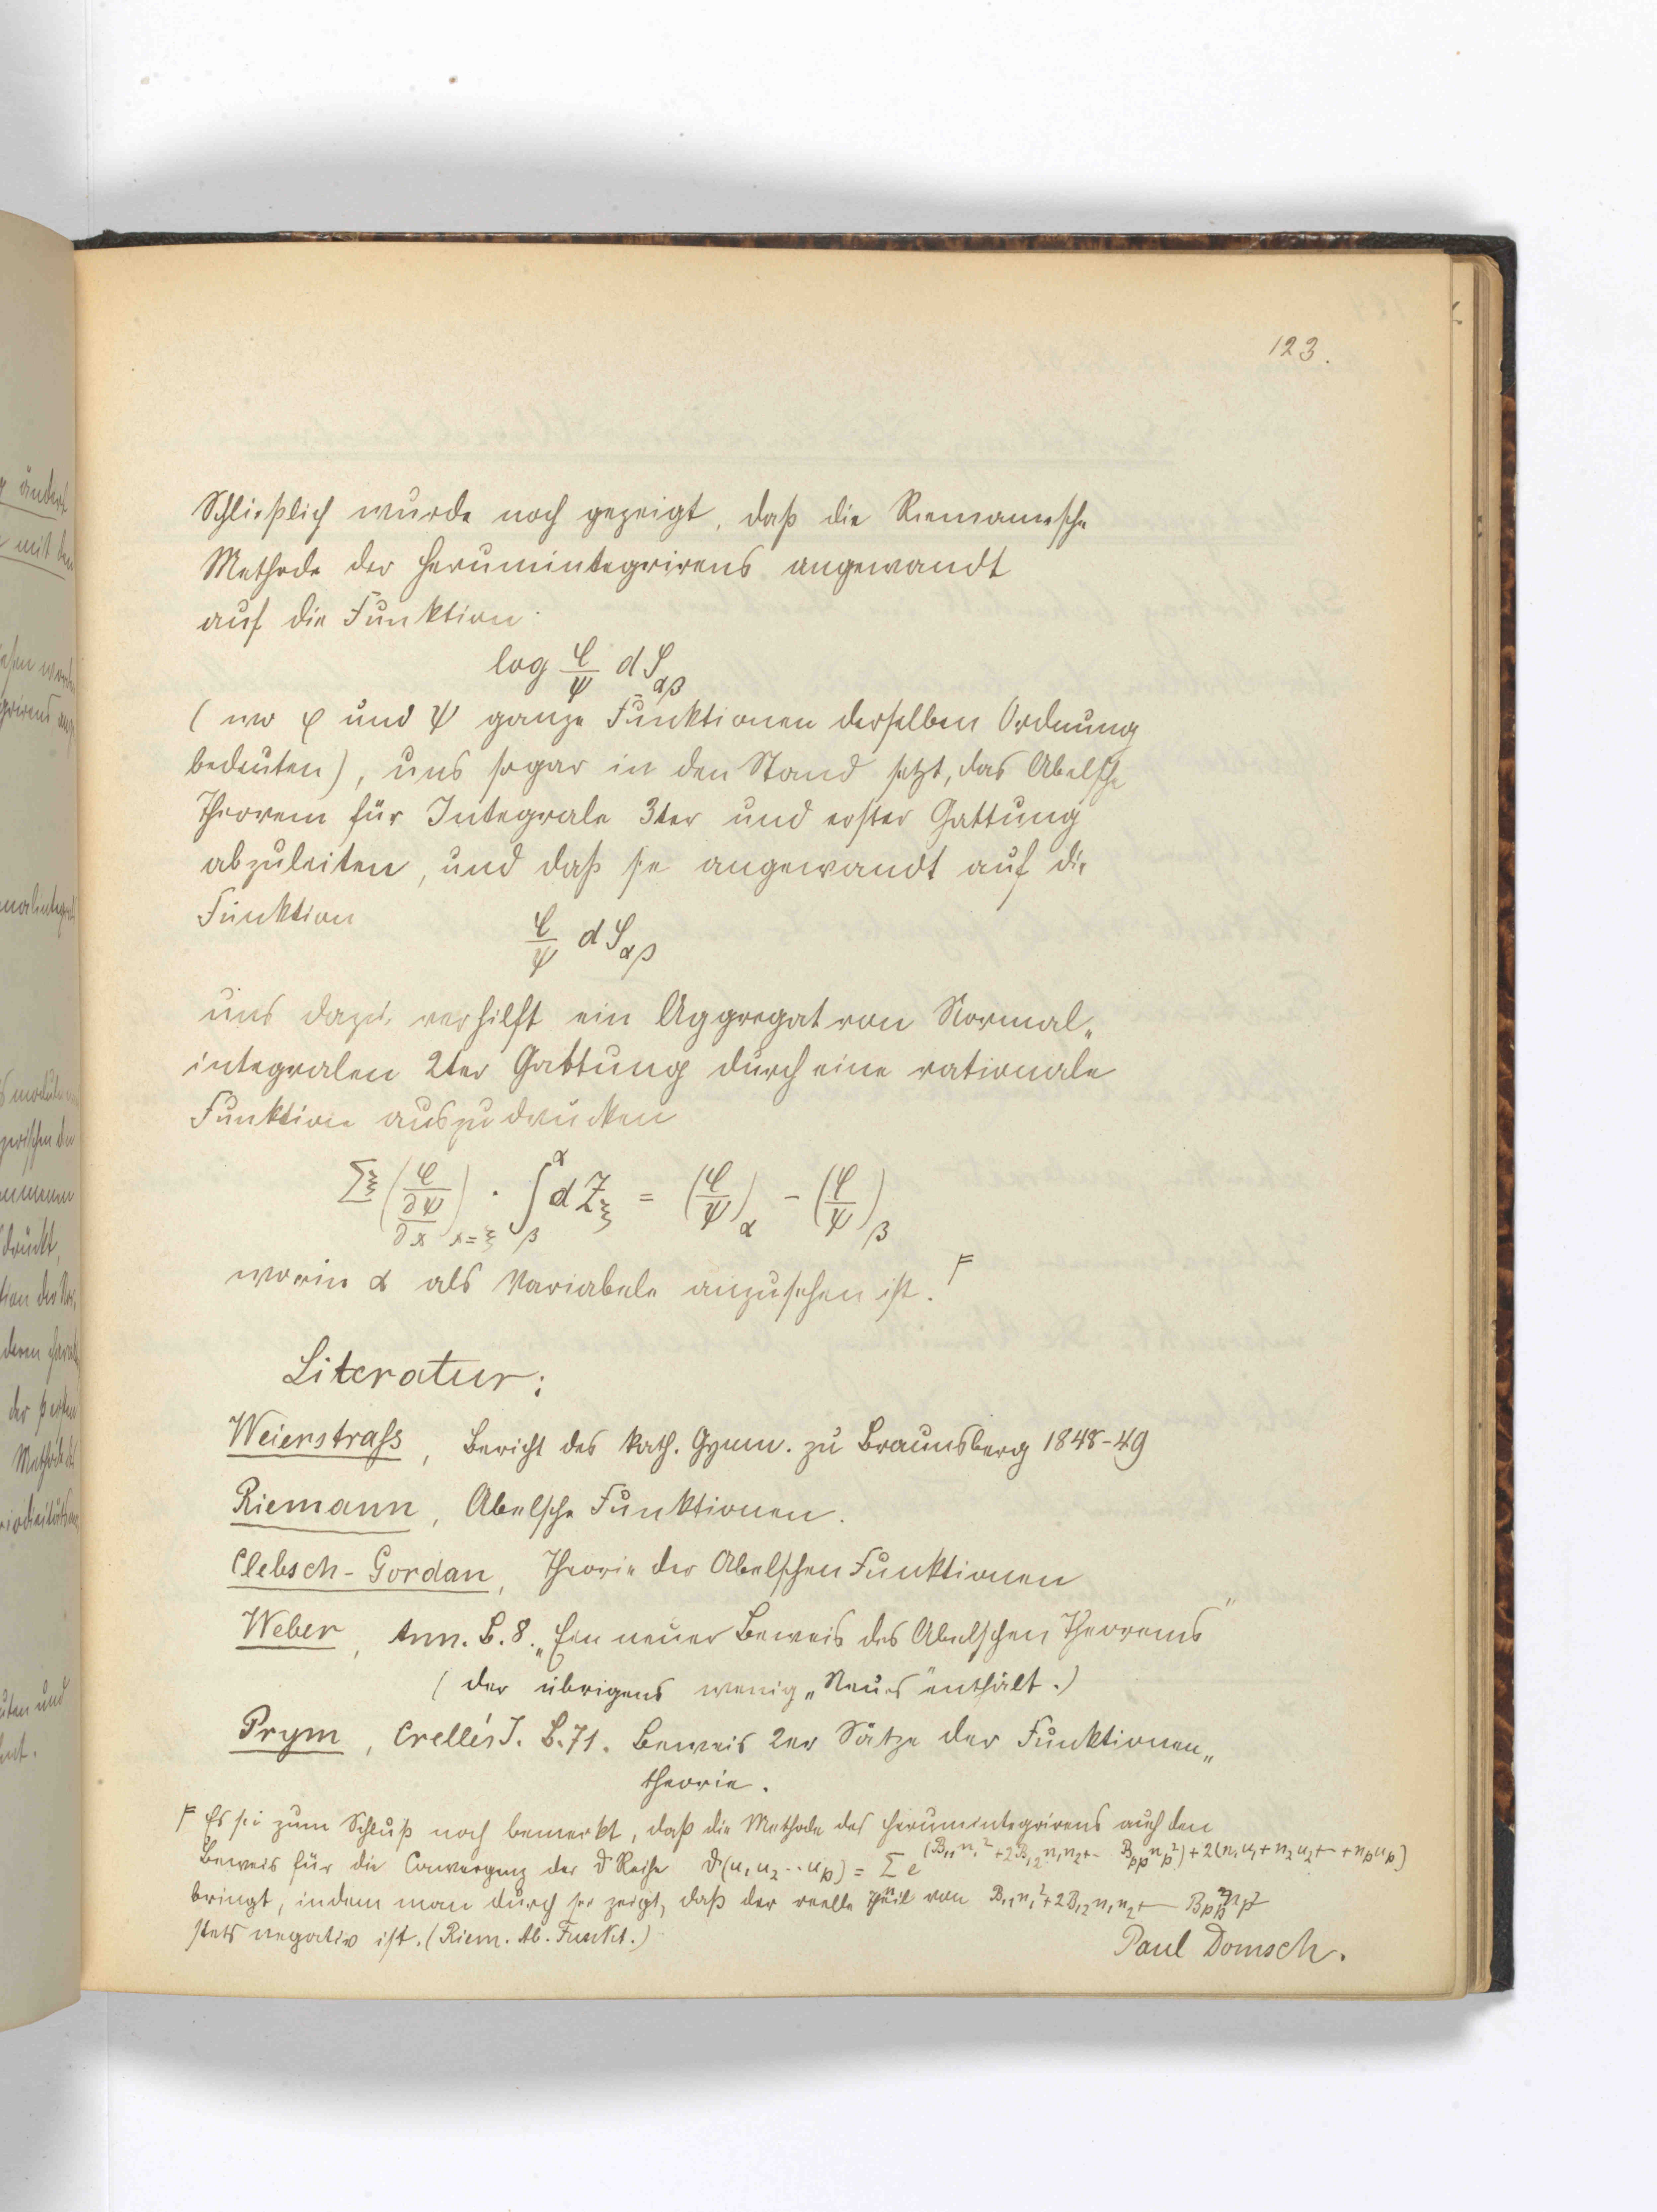 123.
Schließlich wurde noch gezeigt, daß die Riemannsche
Methode des Herumintegrirens angewandt
auf die Funktion
log φ/ψ dS_αβ
(wo φ und ψ ganze Funktionen derselben Ordnung
bedeuten), uns sogar in den Stand setzt, das Abelsche
Theorem für Integrale 3ter und erster Gattung
abzuleiten, und daß sie angewandt auf die
Funktion
φ/ψ dS_αβ
uns dazu verhilft ein Aggregat von Normal„
integralen 2ter Gattung durch eine rationale
Funktion auszudrücken
Σξ (φ / ∂ψ/∂x)_x=ξ · ∫_β^α dZ_ξ = (φ/ψ)_α − (φ/ψ)_β
worin α als Variabele anzusehen ist. F
Literatur:
Weierstrass, Bericht des kath. Gymn. zu Braunsberg 1848-49
Riemann, Abelsche Funktionen.
Clebsch-Gordan, Theorie der Abelschen Funktionen
Weber, Ann. B. 8. „Ein neuer Beweis des Abelschen Theorems"
(der übrigens wenig „Neues" enthält.)
Prym, Crelle's J. B. 71. Beweis 2er Sätze der Funktionen„
theorie.
F Es sei zum Schluß noch bemerkt, daß die Methode des Herumintegrirens auch den
Beweis für die Convergenz der ϑ Reihe ϑ(u₁ u₂ ·· u_p) = Σ e^(B₁₁n₁² + 2B₁₂n₁n₂ + - B_pp n_p²) + 2(n₁u₁ + n₂u₂ + - + n_pu_p)
bringt, indem man durch sie zeigt, daß der reelle Theil von B₁₁n₁² + 2B₁₂n₁n₂ + — B_pp n_p²
stets negativ ist. (Riem. Ab. Funkt.)
Paul Domsch.